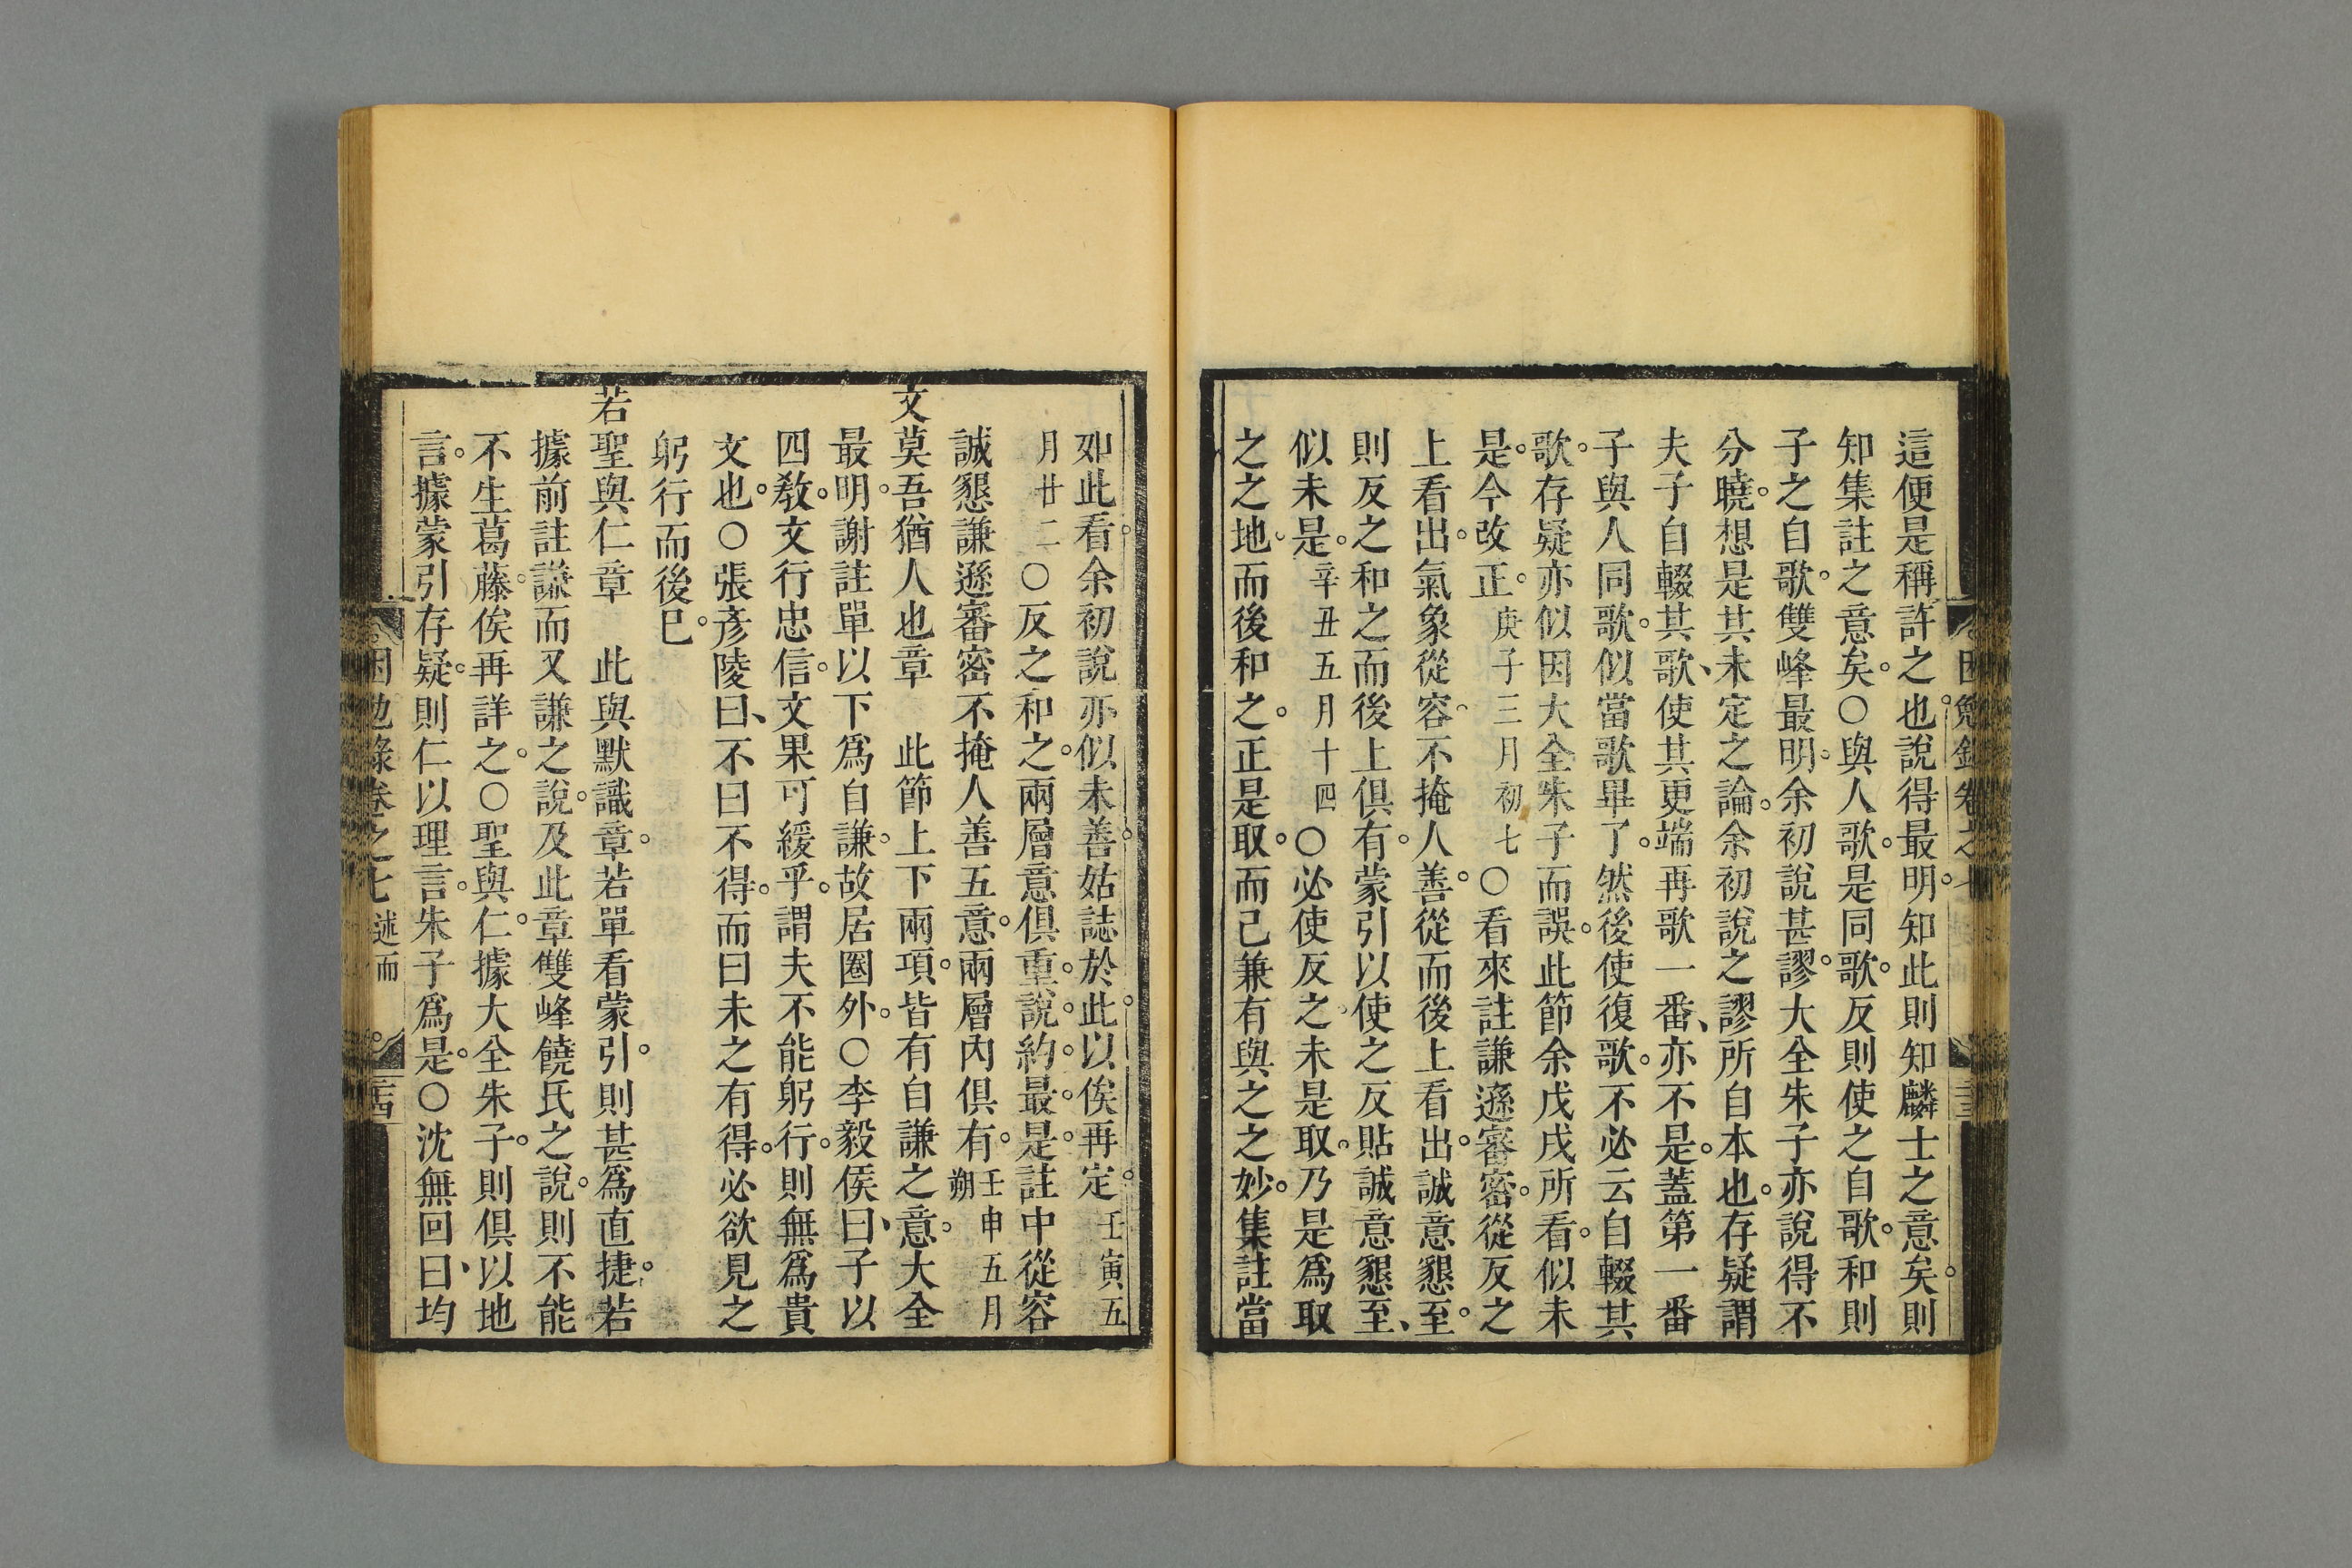 這便是稱許之也。說得最明。知此則知麟士之意矣。則
知集註之意矣。○與人歌。是同歌。反則使之自歌。和則
子之自歌。雙峰最明。余初說甚謬。大全朱子亦說得不
分曉。想是其未定之論。余初說之謬所自本也。存疑謂
夫子自輟其歌、使其更端再歌一番、亦不是。蓋第一番
子與人同歌。似當歌畢了。然後使復歌。不必云自輟其
歌。存疑亦似因大全朱子而誤。此節余戊戌所看。似未
是。今改正。庚子三月初七○看來註謙遜審密。從反之
上看出。氣象從容。不掩人善。從而後上看出。誠意懇至。
則反之和之而後上俱有。蒙引以使之反貼誠意懇至、
似未是。辛丑五月十四○必使反之。未是取。乃是為取
之之地。而後和之。正是取。而己兼有與之之妙。集註當
如此看。余初說亦似未善。姑誌於此。以俟再定。壬寅五
月廿二○反之和之。兩層意俱重。說。約。最。是。註中從容
誠懇謙遜審密不掩人善五意。兩層內俱有。壬申五月朔
文莫吾猶人也章　此節上下兩項。皆有自謙之意。大全
最明。謝註單以下為自謙。故居圈外。○李毅侯曰、子以
四教。文行忠信。文果可緩乎。謂夫不能躬行。則無為貴
文也。○張彥陵曰、不曰不得。而曰未之有得。必欲見之
躬行而後已。
若聖與仁章　此與默識章。若單看蒙引。則甚為直捷。若
據前註謙而又謙之說。及此章雙峰饒氏之說。則不能
不生葛藤。俟再詳之。○聖與仁。據大全朱子。則俱以地
言。據蒙引存疑。則仁以理言。朱子為是。○沈無回曰、均
困勉錄卷之七 述而 二十四